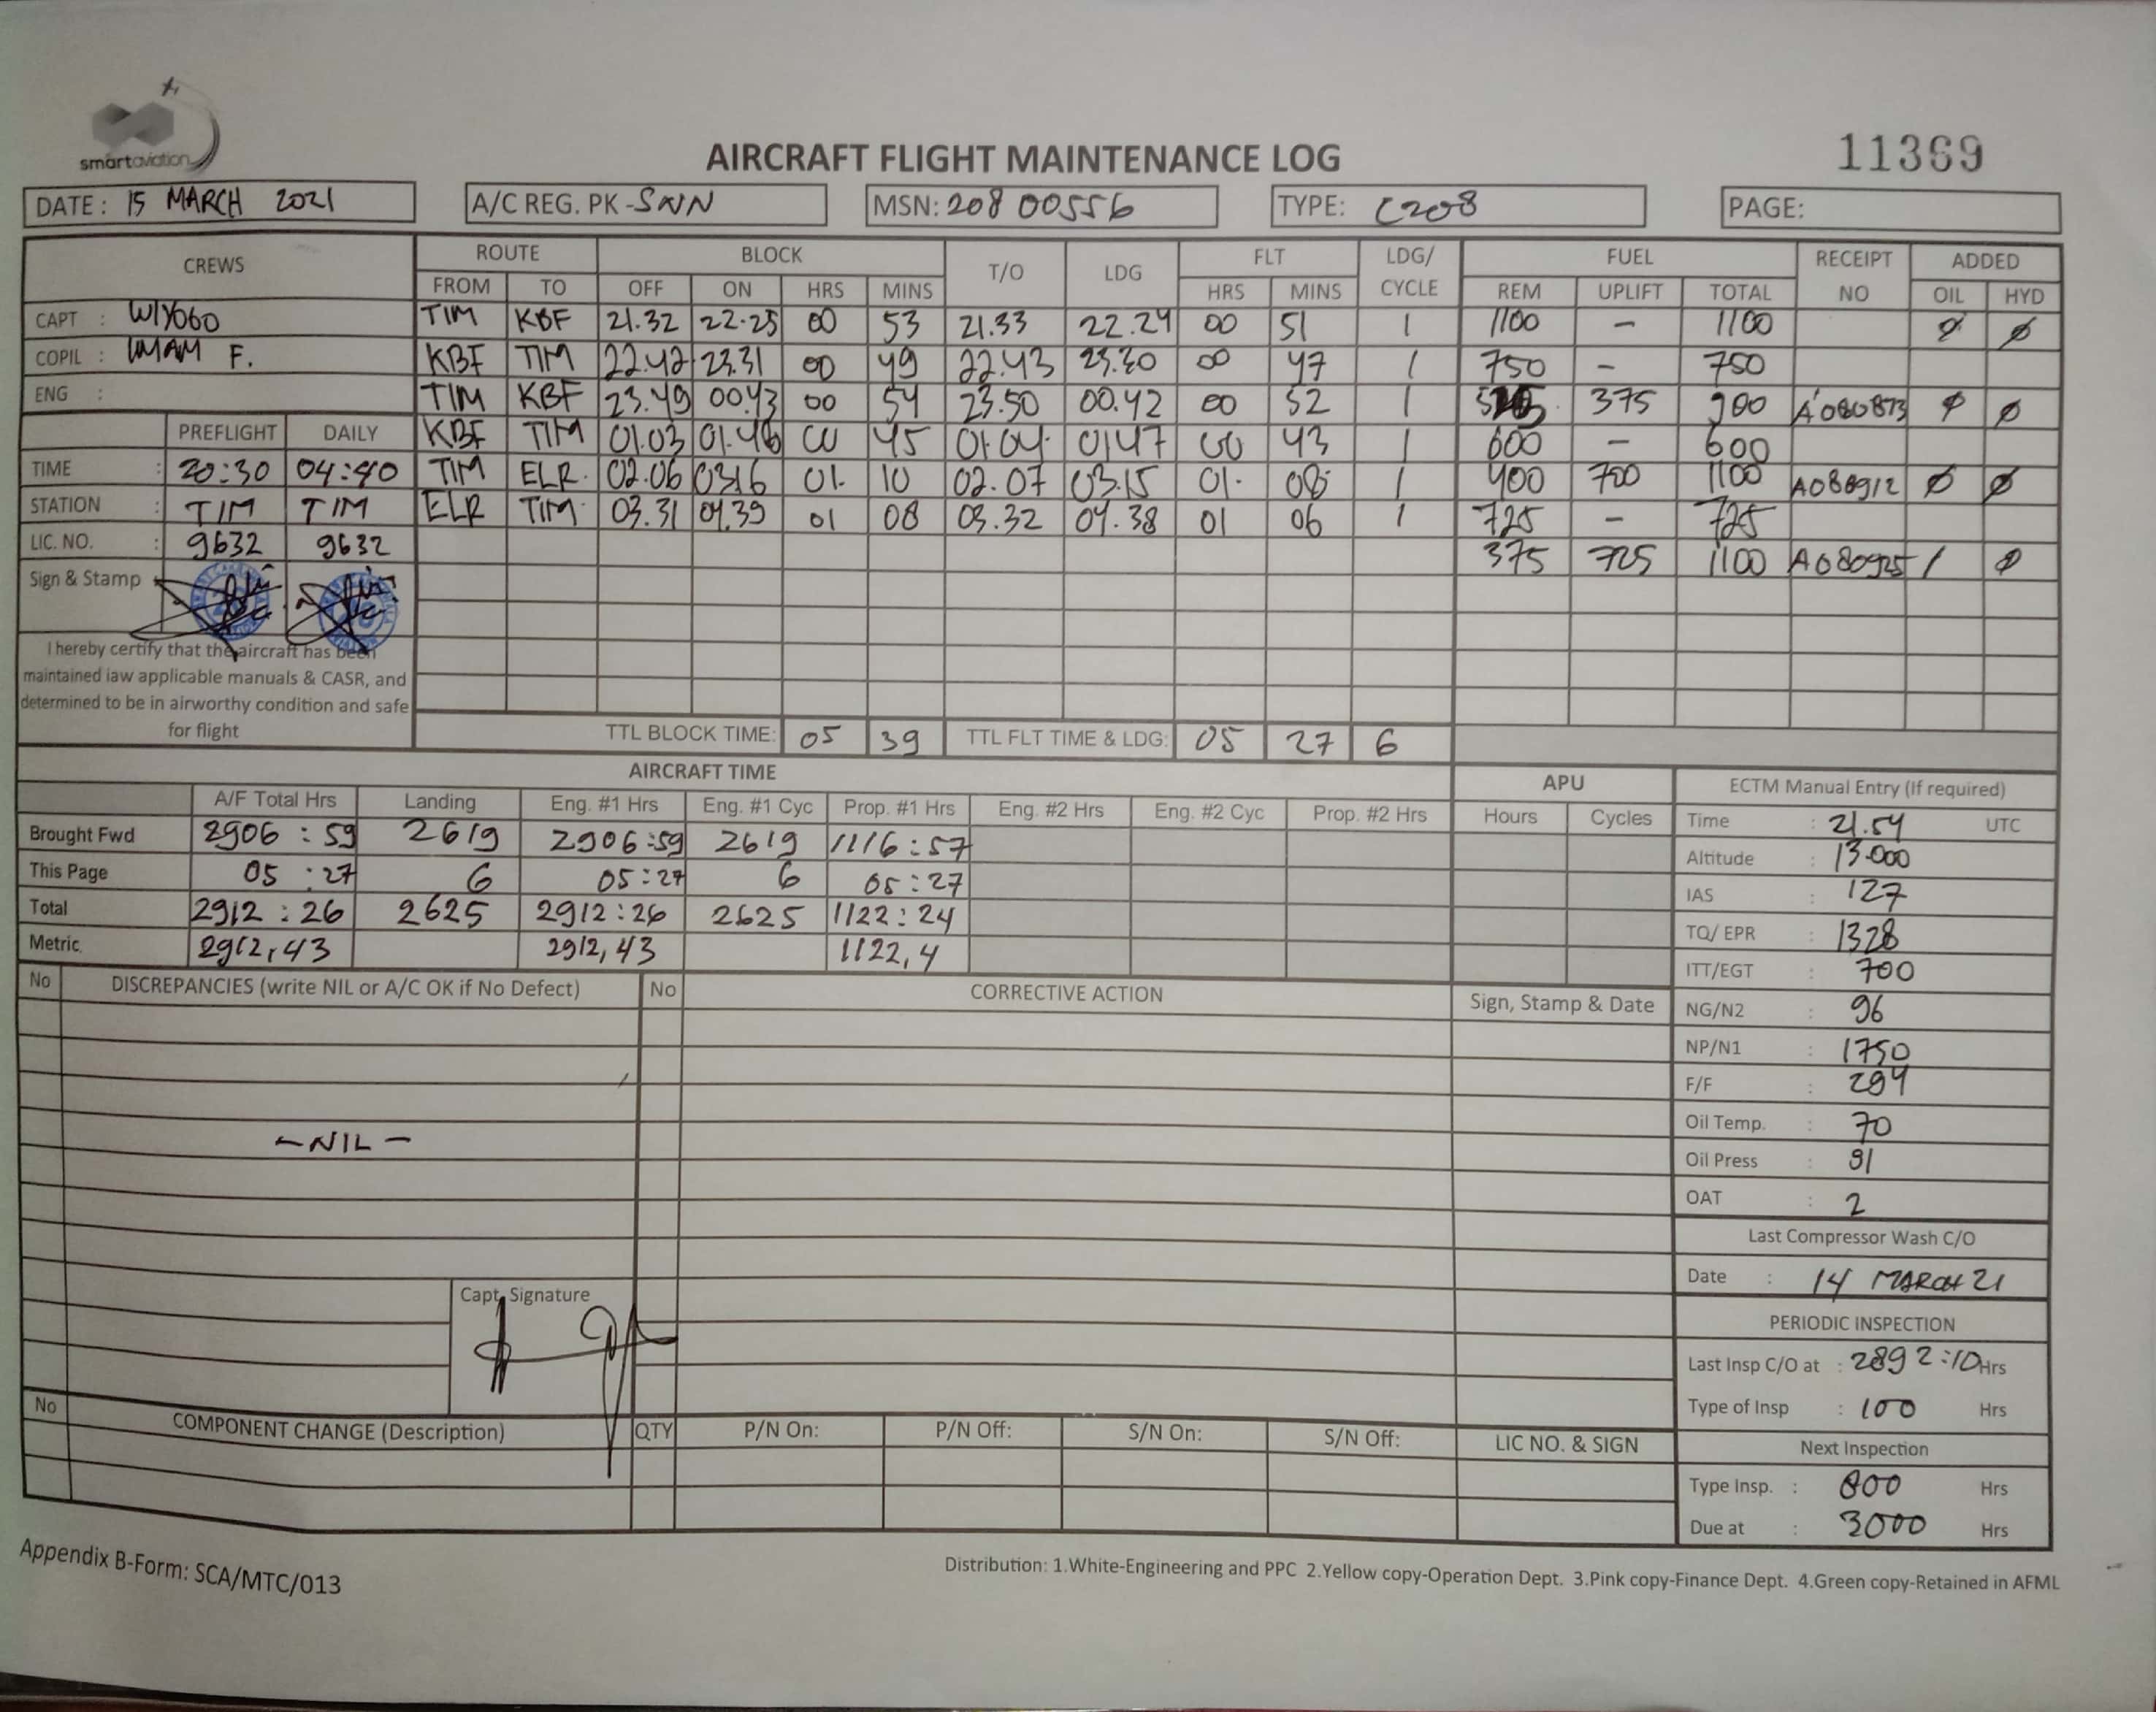 smartaviation
AIRCRAFT FLIGHT MAINTENANCE LOG
11369
DATE: 15 MARCH 2021 A/C REG. PK-SNN MSN: 208 00556 TYPE: C208 PAGE:
CREWS ROUTE BLOCK T/O LDG FLT LDG/ CYCLE FUEL RECEIPT NO ADDED
FROM TO OFF ON HRS MINS HRS MINS REM UPLIFT TOTAL OIL HYD
CAPT : WIYOGO TIM KBF 21.32 22.25 00 53 21.33 22.24 00 51 1 1100 - 1100 Ø Ø
COPIL : IMAM F. KBF TIM 22.42 23.31 00 49 22.43 23.30 00 47 1 750 - 750
ENG : TIM KBF 23.49 00.43 00 54 23.50 00.42 00 52 1 375 900 A080873 Ø Ø
PREFLIGHT DAILY KBF TIM 01.03 01.48 00 45 01.04 01.47 00 43 1 600 - 600
TIME : 20:30 04:40 TIM ELR 02.06 03.16 01. 10 02.07 03.15 01. 08 1 400 700 1100 A080912 Ø Ø
STATION : TIM TIM ELR TIM 03.31 04.39 01 08 03.32 04.38 01 06 1 725 - 725
LIC. NO. : 9632 9632 375 725 1100 A080925 1 Ø
Sign & Stamp
I hereby certify that the aircraft has been
maintained iaw applicable manuals & CASR, and
determined to be in airworthy condition and safe
for flight
TTL BLOCK TIME: 05 39 TTL FLT TIME & LDG: 05 27 6
AIRCRAFT TIME
A/F Total Hrs Landing Eng. #1 Hrs Eng. #1 Cyc Prop. #1 Hrs Eng. #2 Hrs Eng. #2 Cyc Prop. #2 Hrs
Brought Fwd 2906 : 59 2619 2906:59 2619 1116 : 57
This Page 05 : 27 6 05:27 6 05:27
Total 2912 : 26 2625 2912:26 2625 1122:24
Metric 2912,43 2912,43 1122,4
APU
Hours Cycles
ECTM Manual Entry (If required)
Time : 21.54 UTC
Altitude : 13.000
IAS : 127
TQ/ EPR : 1328
ITT/EGT : 700
NG/N2 : 96
NP/N1 : 1750
F/F : 294
Oil Temp. : 70
Oil Press : 91
OAT : 2
Last Compressor Wash C/O
Date : 14 MARCH 21
PERIODIC INSPECTION
Last Insp C/O at : 2892:10 Hrs
Type of Insp : 100 Hrs
Next Inspection
Type Insp. : 800 Hrs
Due at : 3000 Hrs
No DISCREPANCIES (write NIL or A/C OK if No Defect) No CORRECTIVE ACTION Sign, Stamp & Date
- NIL -
Capt. Signature
No COMPONENT CHANGE (Description) QTY P/N On: P/N Off: S/N On: S/N Off: LIC NO. & SIGN
Appendix B-Form: SCA/MTC/013
Distribution: 1.White-Engineering and PPC 2.Yellow copy-Operation Dept. 3.Pink copy-Finance Dept. 4.Green copy-Retained in AFML